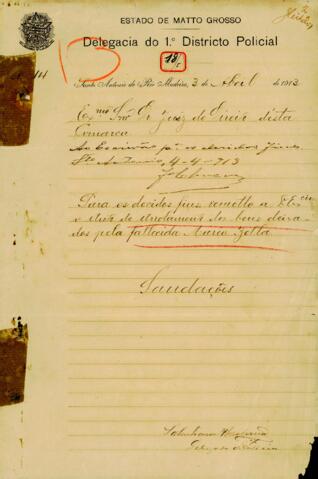 ESTADO DE MATTO GROSSO
Delegacia do 1.º Districto Policial
Santo Antonio do Rio Madeira, 3 de Abril de 1913
Exmo Snr Dr Juiz de Direito desta
Comarca
Ao Escrivão pa os devidos fins.
Sto Antonio, 4-4-913
Para os devidos fins remetto a V Excia
o auto de arrolamento dos bens deixa-
dos pela fallecida Maria Zolta
Saudações